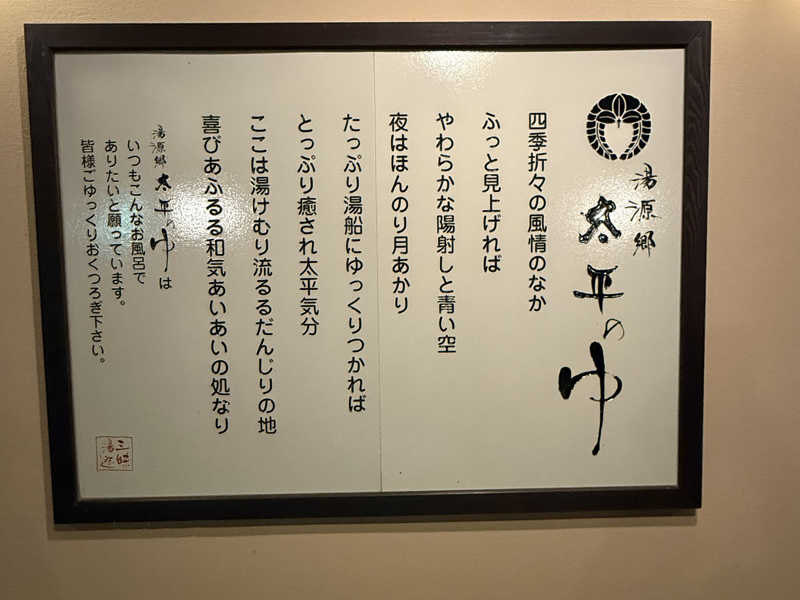 湯源郷
太平のゆ
四季折々の風情のなか
ふっと見上げれば
やわらかな陽射しと青い空
夜はほんのり月あかり
たっぷり湯船にゆっくりつかれば
とっぷり癒され太平気分
ここは湯けむり流るるだんじりの地
喜びあふるる和気あいあいの処なり
湯源郷 太平のゆは
いつもこんなお風呂で
ありたいと願っています。
皆様ごゆっくりおくつろぎ下さい。